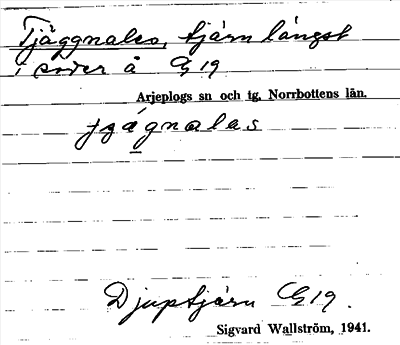 Tjäggnales, tjärn längst
i söder å G 19
Arjeplogs sn och tg, Norrbottens län.
Djuptjärn G 19.
Sigvard Wallström, 1941.